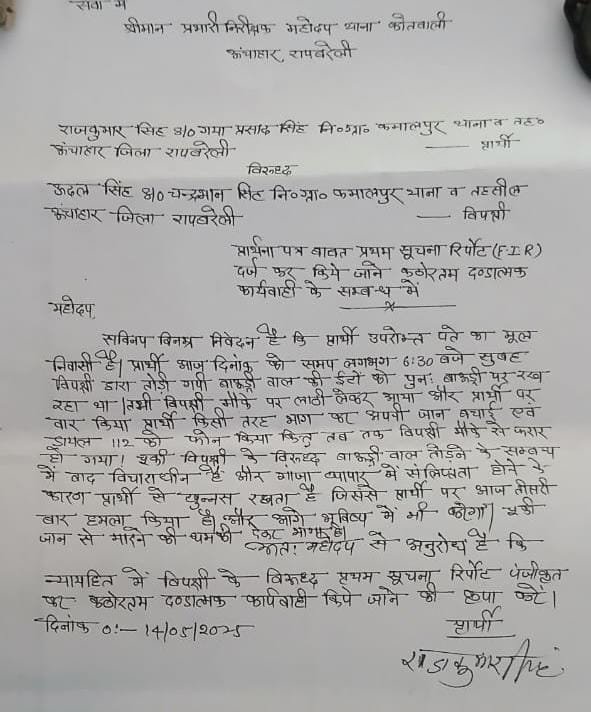 सेवा में
श्रीमान प्रभारी निरीक्षक महोदय थाना कोतवाली
ऊंचाहार, रायबरेली
राजकुमार सिंह S/O गया प्रसाद सिंह नि०ग्रा० कमालपुर थाना व तह०
ऊंचाहार जिला रायबरेली — प्रार्थी
विरुद्ध
ऊदल सिंह S/O चन्द्रभान सिंह नि०ग्रा० कमालपुर थाना व तहसील
ऊंचाहार जिला रायबरेली — विपक्षी
प्रार्थना पत्र बावत प्रथम सूचना रिर्पोट (F.I.R)
दर्ज कर किये जाने कठोरतम दण्डात्मक
कार्यवाही के सम्बन्ध में
महोदय,
सविनय विनम्र निवेदन है कि प्रार्थी उपरोक्त पते का मूल
निवासी है। प्रार्थी आज दिनांक को समय लगभग 6:30 बजे सुबह
विपक्षी द्वारा तोड़ी गयी बाऊंड्री वाल की ईटों को पुनः बाऊंड्री पर रख
रहा था। तभी विपक्षी मौके पर लाठी लेकर आया और प्रार्थी पर
वार किया प्रार्थी किसी तरह भाग कर अपनी जान बचाई एवं
डायल 112 को फोन किया किंतु तब तक विपक्षी मौके से फरार
हो गया। चूकी विपक्षी के विरुध्द बाऊंड्री वाल तोड़ने के सम्बन्ध
में वाद विचाराधीन है और गांजा व्यापार में संलिप्तता होने के
कारण प्रार्थी से खुन्नस रखता है जिससे प्रार्थी पर आज तीसरी
बार हमला किया है। और आगे भविष्य में भी करेगा। चूकी
जान से मारने की धमकी देकर भागा है।
अतः महोदय से अनुरोध है कि
न्यायहित में विपक्षी के विरूध्द प्रथम सूचना रिर्पोट पंजीकृत
कर कठोरतम दण्डात्मक कार्यवाही किये जाने की कृपा करें।
दिनांक 0:- 14/05/2025
प्रार्थी
राजकुमार सिंह